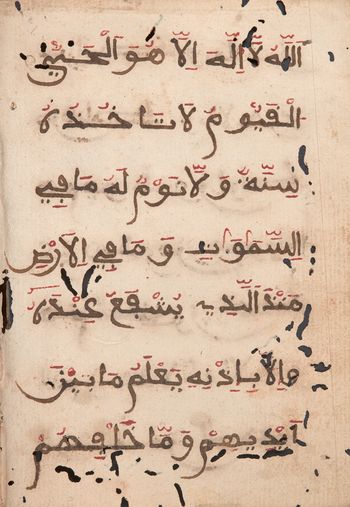 اَللّٰهُ لَا اِلٰهَ اِلَّا هُوَ اَلْحَيُّ
الْقَيُّومُ لَا تَاخُذُهُ
سِنَةٌ وَلَا نَوْمٌ لَهُ مَا فِي
السَّمٰوٰتِ وَمَا فِي الْاَرْضِ
مَنْ ذَا الَّذِي يَشْفَعُ عِنْدَهُ
اِلَّا بِاِذْنِهِ يَعْلَمُ مَا بَيْنَ
اَيْدِيهِمْ وَمَا خَلْفَهُمْ